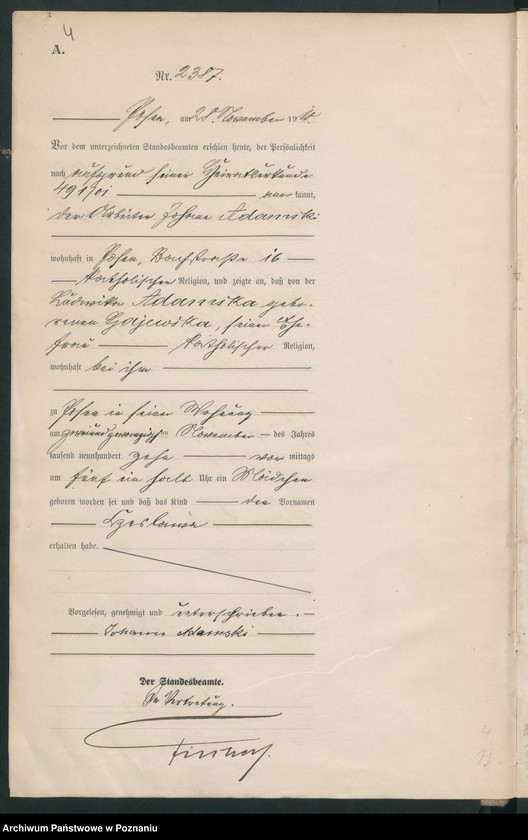 4
A.
Nr. 2387.
Posen, am 28. November 1910.
Vor dem unterzeichneten Standesbeamten erschien heute, der Persönlichkeit
nach aufgrund seiner Heiratsurkunde
491/01 aner kannt,
der Arbeiter Johann Adamski
wohnhaft in Posen, Bachstraße 16
katholischer Religion, und zeigte an, daß von der
Ludwika Adamska gebo-
renen Gajewska, seiner Ehe-
frau katholischer Religion,
wohnhaft bei ihm
zu Posen in seiner Wohnung
am November des Jahres
tausend neunhundert zehn vor mittags
um fünf ein halb Uhr ein Mädchen
geboren worden sei und daß das Kind den Vornamen
Czeslawa
erhalten habe.
Vorgelesen, genehmigt und unterschrieben.
Johann Adamski
Der Standesbeamte.
In Vertretung.
Archiwum Państwowe w Poznaniu